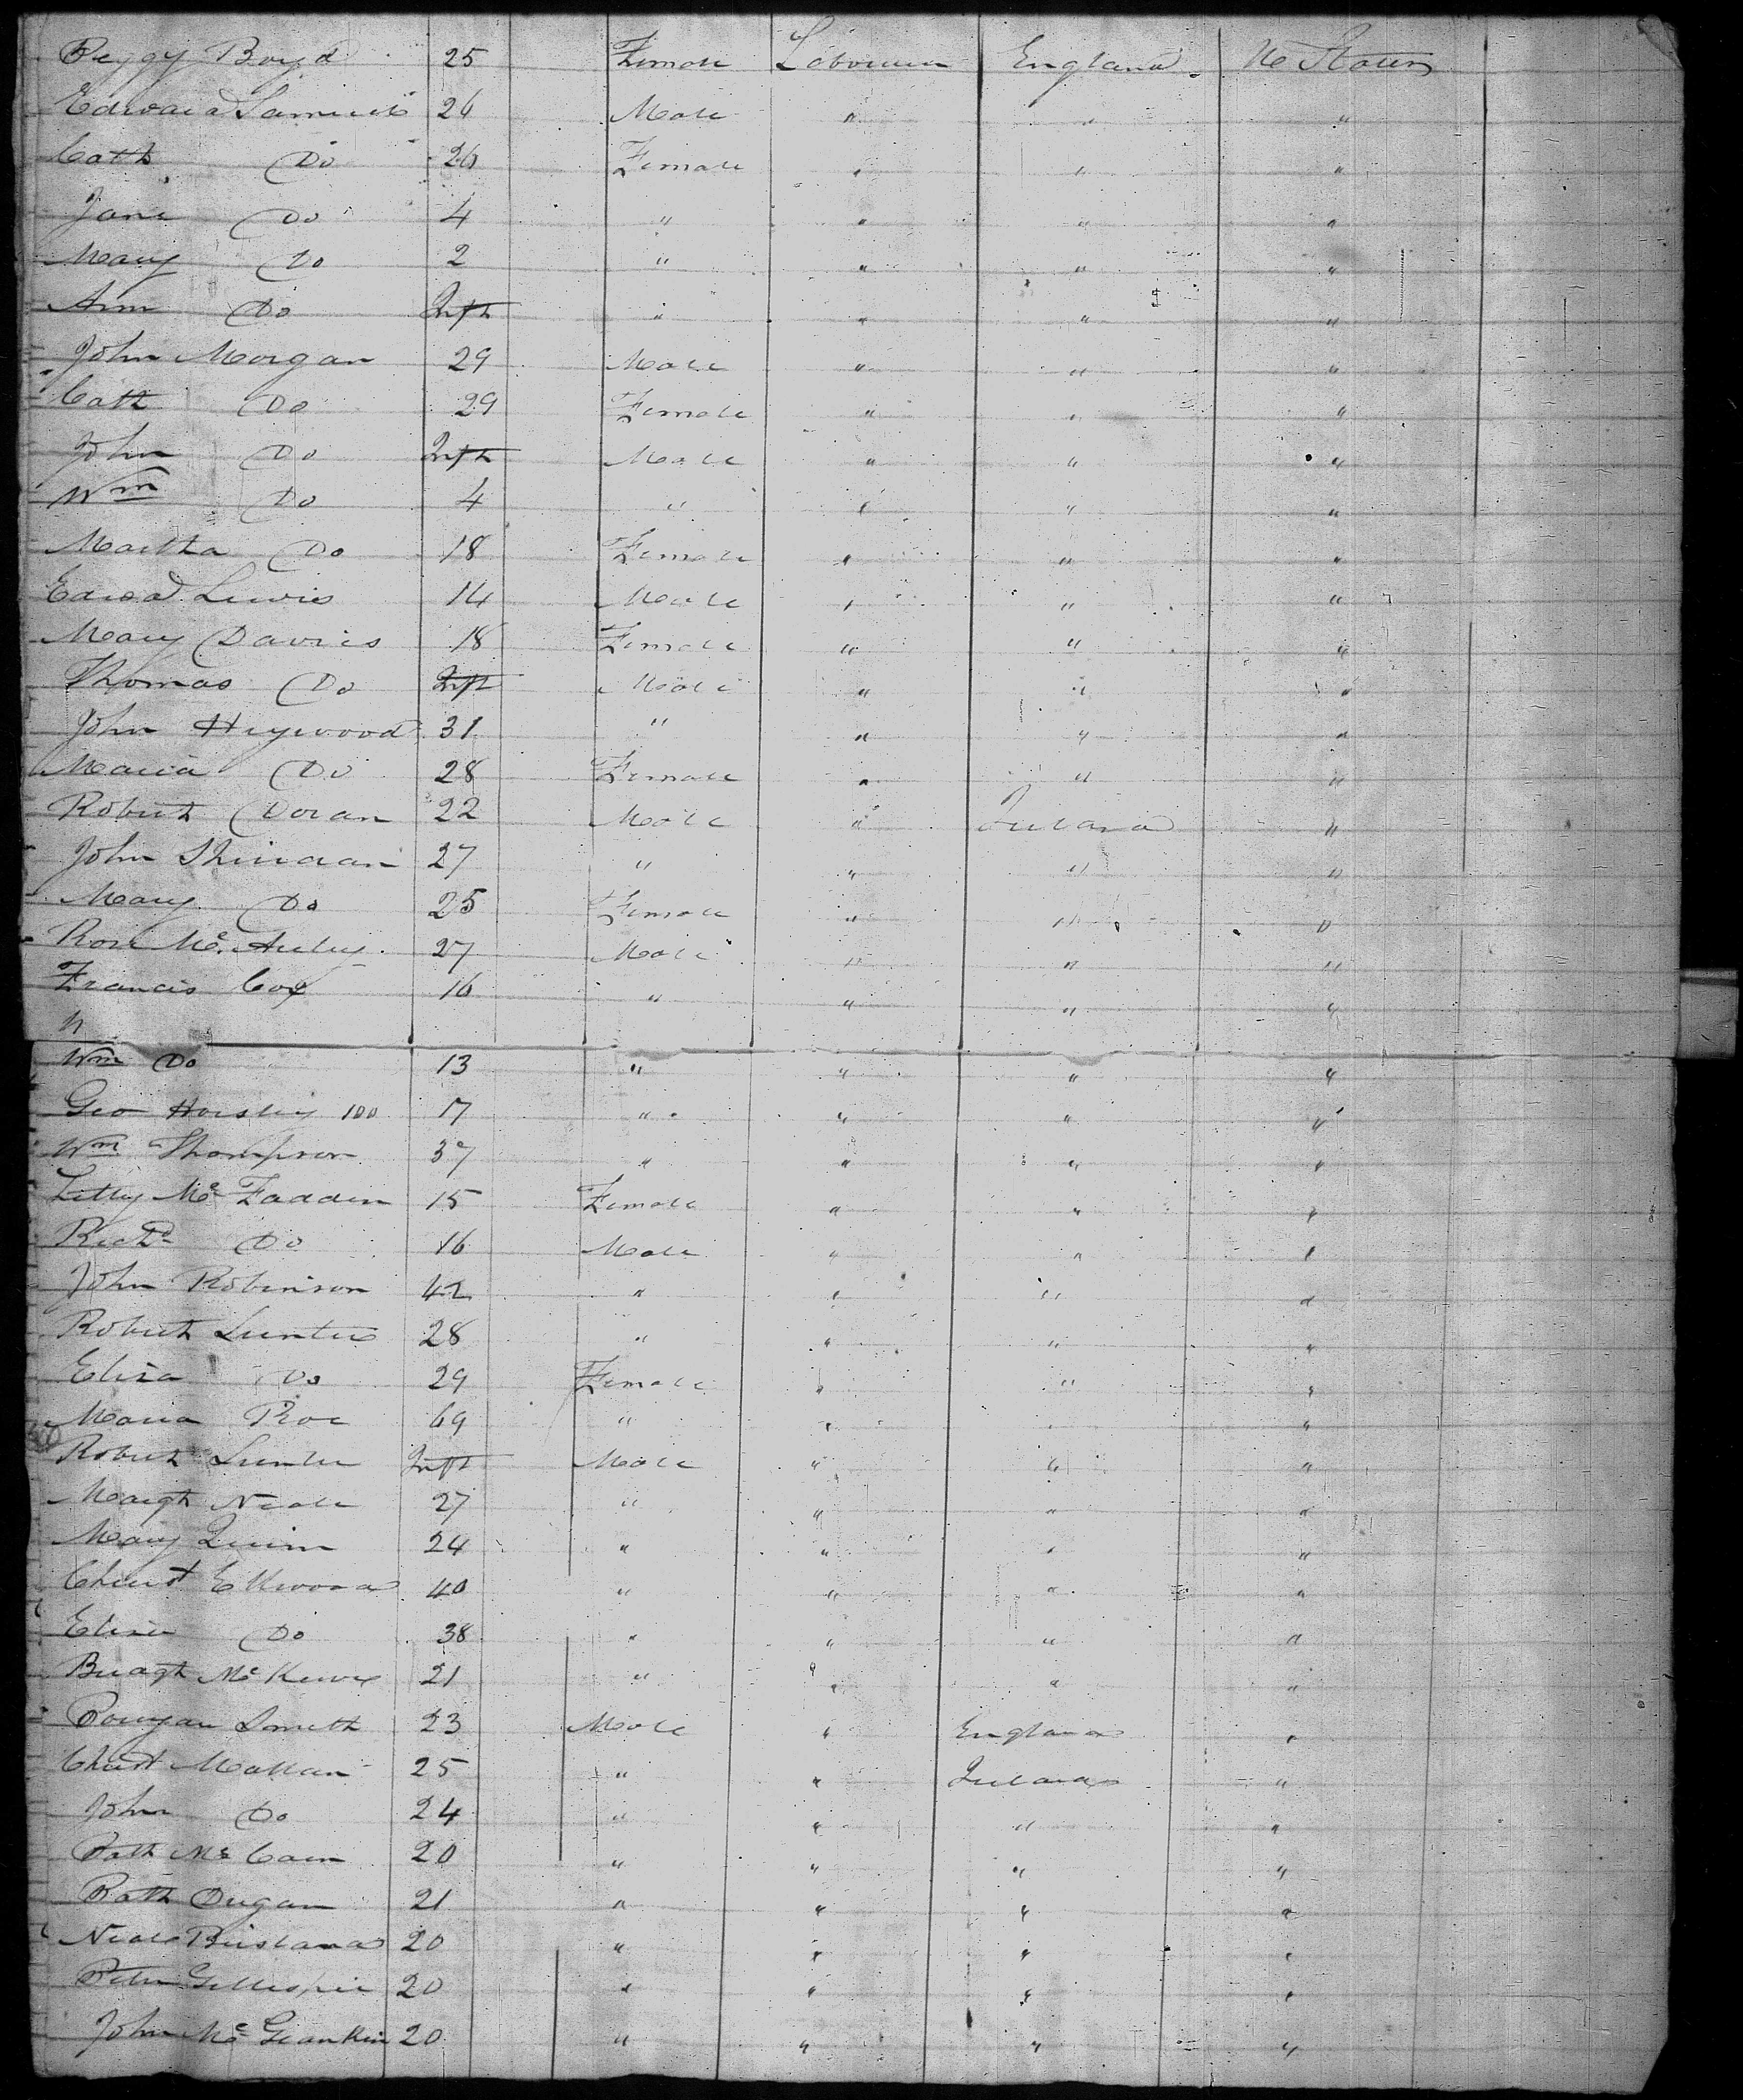 Peggy Boyd 25 Female Labourer England U States
Edward Samuels 26 Male " " "
Cath Do 26 Female " " "
Jane Do 4 " " " "
Mary Do 2 " " " "
Ann Do Inft " " " "
John Morgan 29 Male " " "
Cath Do 29 Female " " "
John Do Inft Male " " "
Wm Do 4 " " " "
Martha Do 18 Female " " "
Edwd Lewis 14 Male " " "
Mary Davies 18 Female " " "
Thomas Do Inft Male " " "
John Heywood 31 " " " "
Maria Do 28 Female " " "
Robert Doran 22 Male " Ireland "
John Sheridan 27 " " " "
Mary Do 25 Female " " "
Rose Mc Auley 27 Male " " "
Francis Cox 16 " " " "
W
Wm Do 13 " " " "
Geo Horsley 100 17 " " " "
Wm Thompson 37 " " " "
Letty Mc Fadden 15 Female " " "
Richd Do 16 Male " " "
John Robinson 42 " " " "
Robert 28 " " " "
Eliza Do 29 Female " " "
Maria Roe 69 " " " "
Robert Inft Male " " "
Margt Neale 27 " " " "
Mary Quinn 24 " " " "
Christ Ellwood 40 " " " "
Eliza Do 38 " " " "
Bridgt Mc 21 " " " "
Smith 23 Male " England "
Christ Mallan 25 " " Ireland "
John Do 24 " " " "
Patk Mc Cann 20 " " " "
Patk Dugan 21 " " " "
Neale Brisland 20 " " " "
Peter Gillespie 20 " " " "
John Mc 20 " " " "